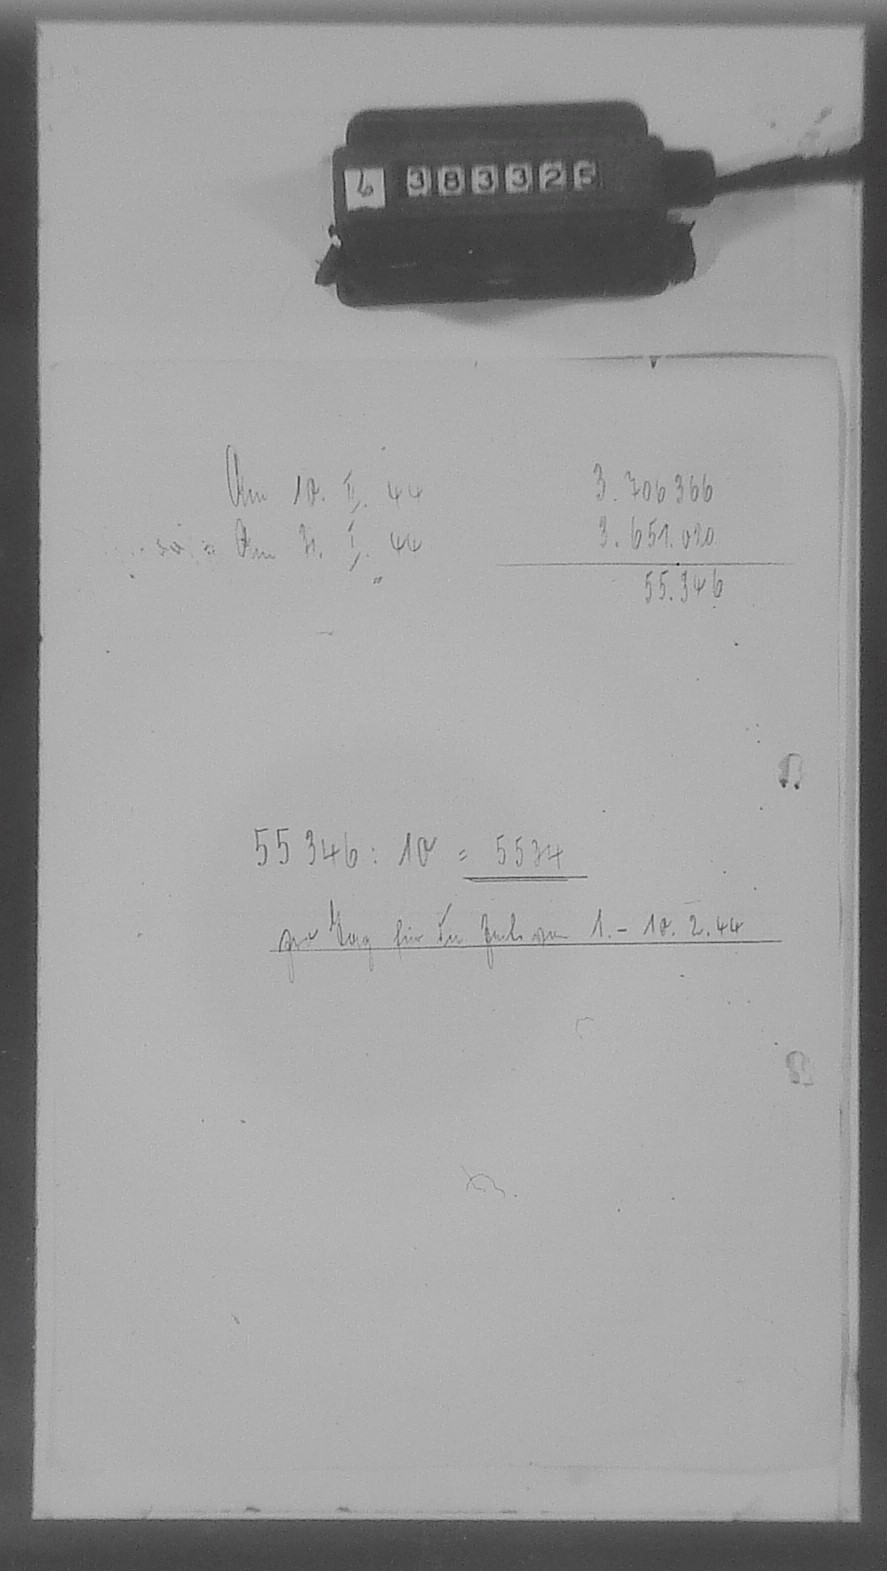 6 383325
Am 10. II. 44 3.706366
Am 31. I. 44 3.651.020
55.346
55346 : 10 = 5534
pro Tag für die Zeit vom 1. - 10. 2. 44